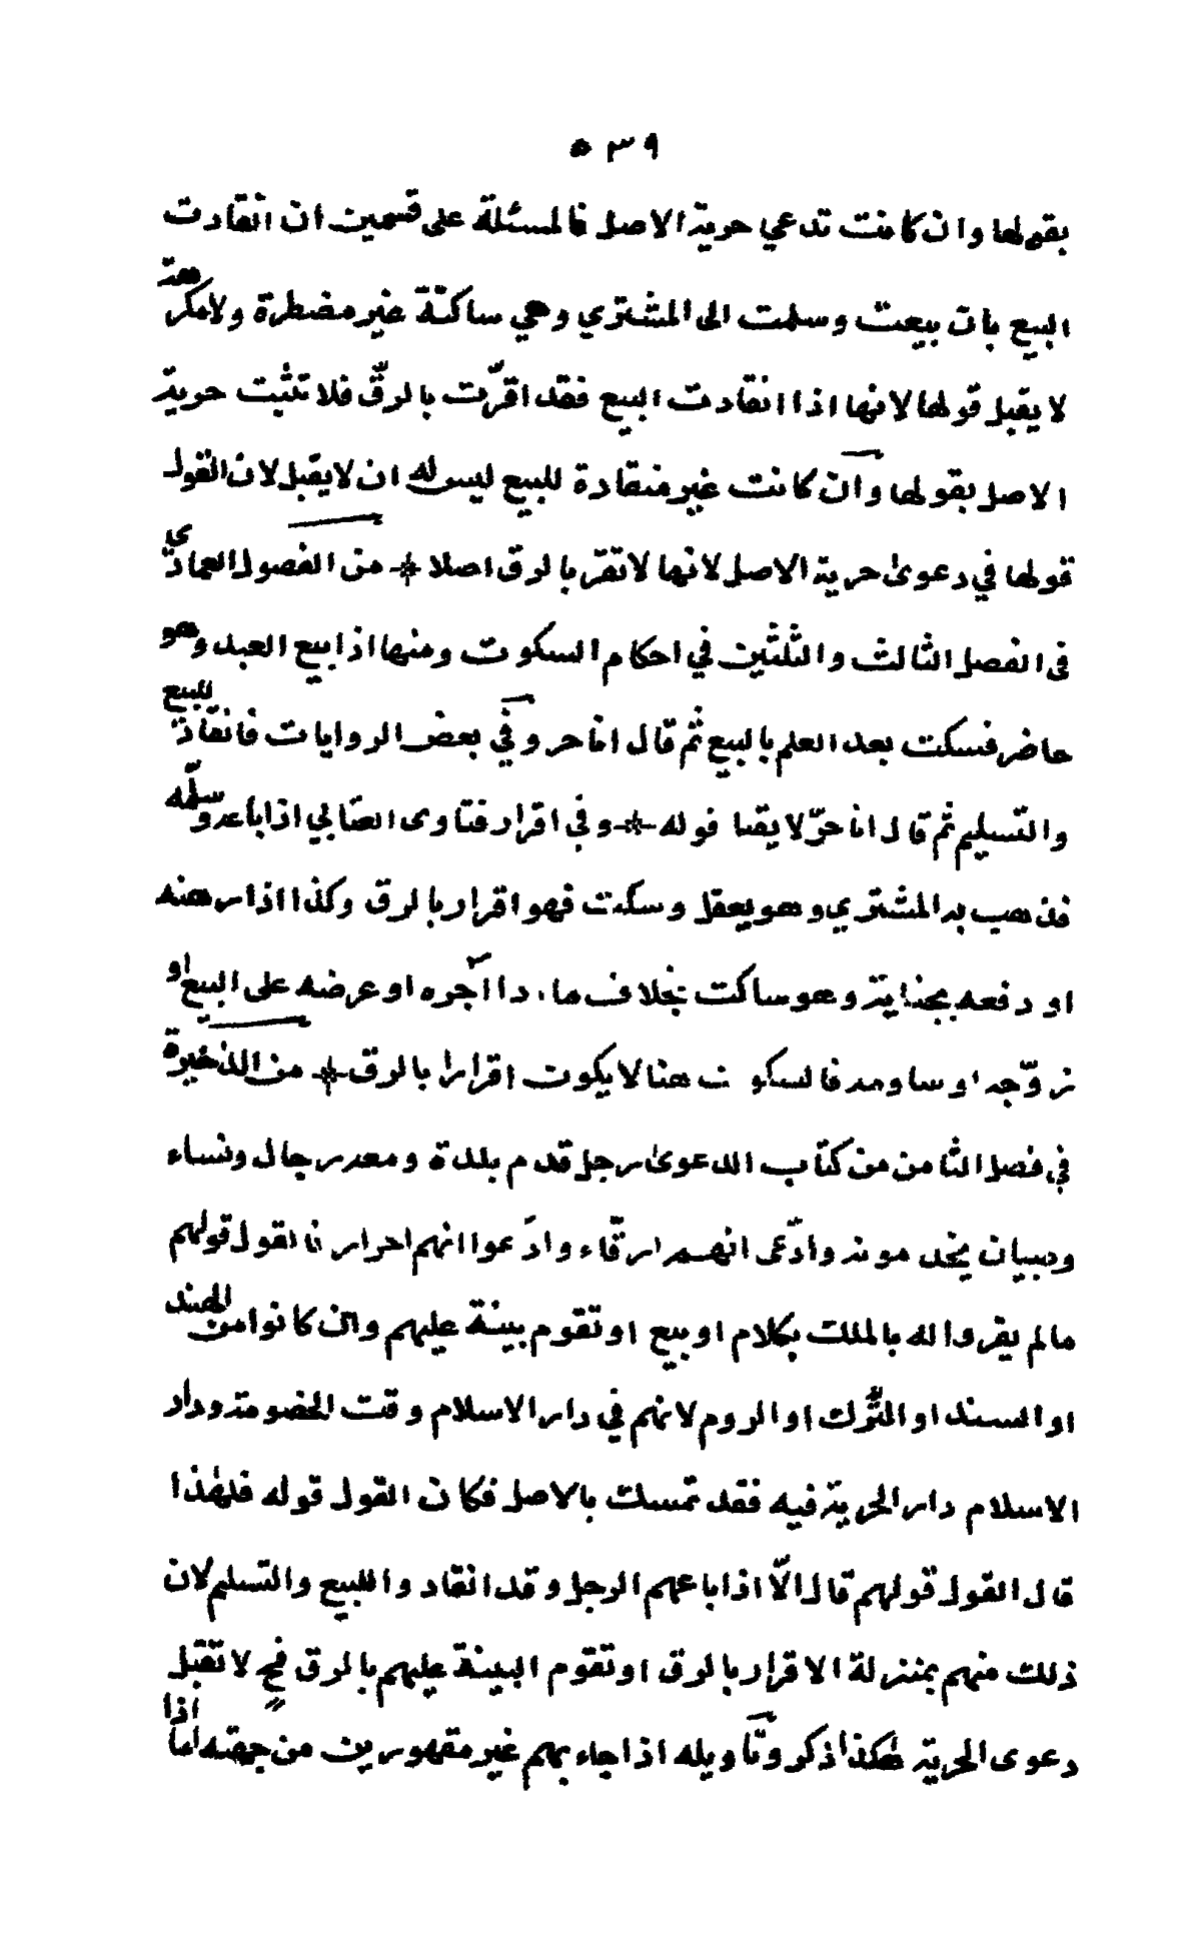 ٥٣٩
بقولها وان كانت تدعي حرية الاصل فالمسئلة على قسمين ان انقادت
البيع بان بيعت وسلمت الى المشتري وهي ساكتة غير مضطرة ولا مكرهة
لا يقبل قولها لانها اذا انقادت البيع فقد اقرّت بالرقّ فلا تثبت حرية
الاصل بقولها وان كانت غير منقادة للبيع ليس له ان لا يقبل لان القول
قولها في دعوى حرية الاصل لانها لا تقر بالرق اصلا * من الفصول العمادي
فى الفصل الثالث والثلثين في احكام السكوت ومنها اذا بيع العبد وهو
حاضر فسكت بعد العلم بالبيع ثم قال انا حر وفي بعض الروايات فانقاد للبيع
والتسليم ثم قال انا حرّ لا يقبل قوله * وفي اقرار فتاوى العتابي اذا باعه وسلّمه
فذهب به المشتري وهو يعقل وسكت فهو اقرار بالرق وكذا اذا رهنه
او دفعه بجناية وهو ساكت بخلاف ما اذا آجره او عرضه على البيع او
زوّجه او ساومه فالسكوت هنا لا يكون اقرارا بالرق * من الذخيرة
في فصل الثامن من كتاب الدعوى رجل قدم بلدة ومعه رجال ونساء
وصبيان يخدمونه وادّعى انهم ارقّاء وادّعوا انهم احرار فالقول قولهم
ما لم يقروا له بالملك بكلام او بيع او تقوم بينة عليهم وان كانوا من الهند
او السند او التُّرك او الروم لانهم في دار الاسلام وقت الخضومة ودار
الاسلام دار الحرية فيه فقد تمسك بالاصل فكان القول قوله فلهٰذا
قال القول قولهم قال الّا اذا باعهم الرجل وقد انقاد واللبيع والتسليم لان
ذلك منهم بمنزلة الاقرار بالرق او تقوم البينة عليهم بالرق فح لا تقبل
دعوى الحرية هٰكذا ذكر وتأويله اذا جاء بهم غير مقهورين من جهته اما اذا